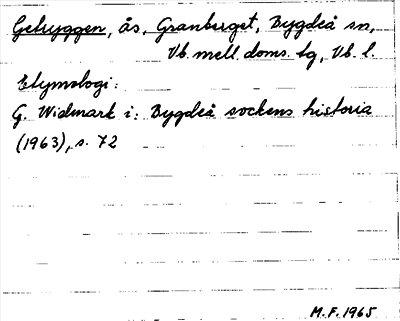 Getryggen, ås, Granberget, Bygdeå sn,
Vb. mell. doms. tg, Vb. l.
Etymologi:
G. Widmark i: Bygdeå sockens historia
(1963), s. 72
M.F. 1965